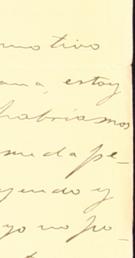 motivo
ana, estoy
habriamos
me da pe-
yendo y
yo no po-